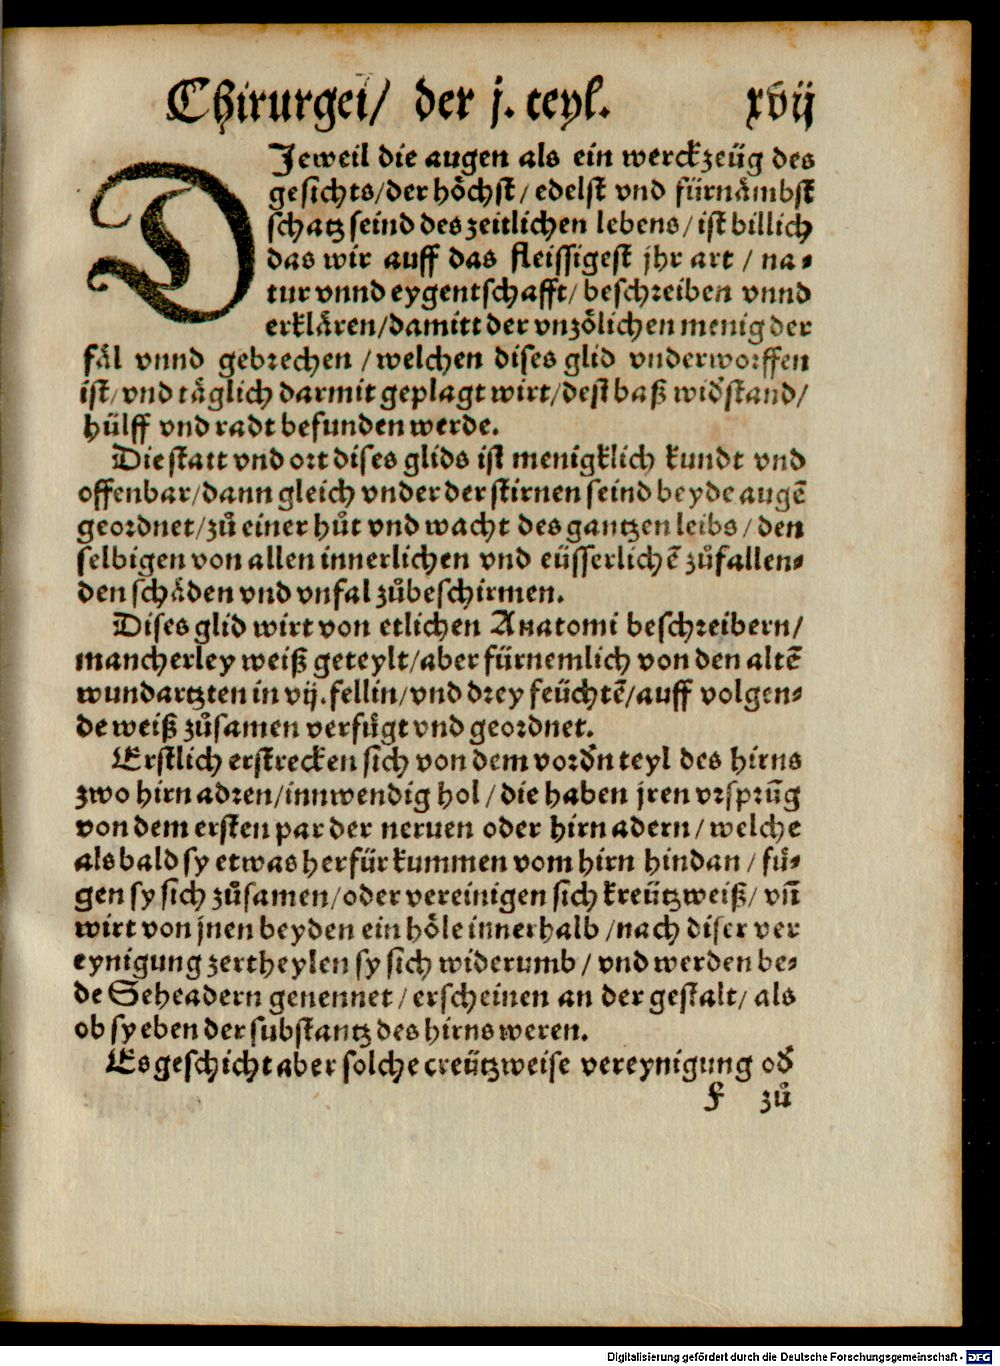 Chirurgei/ der j. teyl. xvij
DJeweil die augen als ein werckzeüg des
gesichts/der hoͤchst/ edelst vnd fürnaͤmbst
schatz seind des zeitlichen lebens/ ist billich
das wir auff das fleissigest jhr art / na⸗
tur vnnd eygentschafft/ beschreiben vnnd
erklaͤren/damitt der vnzoͤlichen menig der
faͤl vnnd gebrechen /welchen dises glid vnderworffen
ist/ vnd taͤglich darmit geplagt wirt/dest baß wid̕stand/
hülff vnd radt befunden werde.
Die statt vnd ort dises glids ist menigklich kundt vnd
offenbar/dann gleich vnder der stirnen seind beyde augē
geordnet/zů einer hůt vnd wacht des gantzen leibs/ den
selbigen von allen innerlichen vnd eüsserlichē zůfallen⸗
den schaͤden vnd vnfal zůbeschirmen.
Dises glid wirt von etlichen Anatomi beschreibern/
mancherley weiß geteylt/aber fürnemlich von den altē
wundartzten in vij. fellin/vnd drey feüchtē/auff volgen⸗
de weiß zůsamen verfuͤgt vnd geordnet.
Erstlich erstrecken sich von dem vord̕n teyl des hirns
zwo hirn adren/innwendig hol /die haben jren vrsprūg
von dem ersten par der neruen oder hirn adern/ welche
als bald sy etwas herfür kummen vom hirn hindan / fuͤ⸗
gen sy sich zůsamen/oder vereinigen sich kreützweiß/ vñ
wirt von jnen beyden ein hoͤle innerhalb /nach diser ver
eynigung zertheylen sy sich widerumb / vnd werden be⸗
de Seheadern genennet / erscheinen an der gestalt/ als
ob sy eben der substantz des hirns weren.
Es geschicht aber solche creützweise vereynigung od̕
F zů
Digitalisierung gefördert durch die Deutsche Forschungsgemeinschaft - DFG